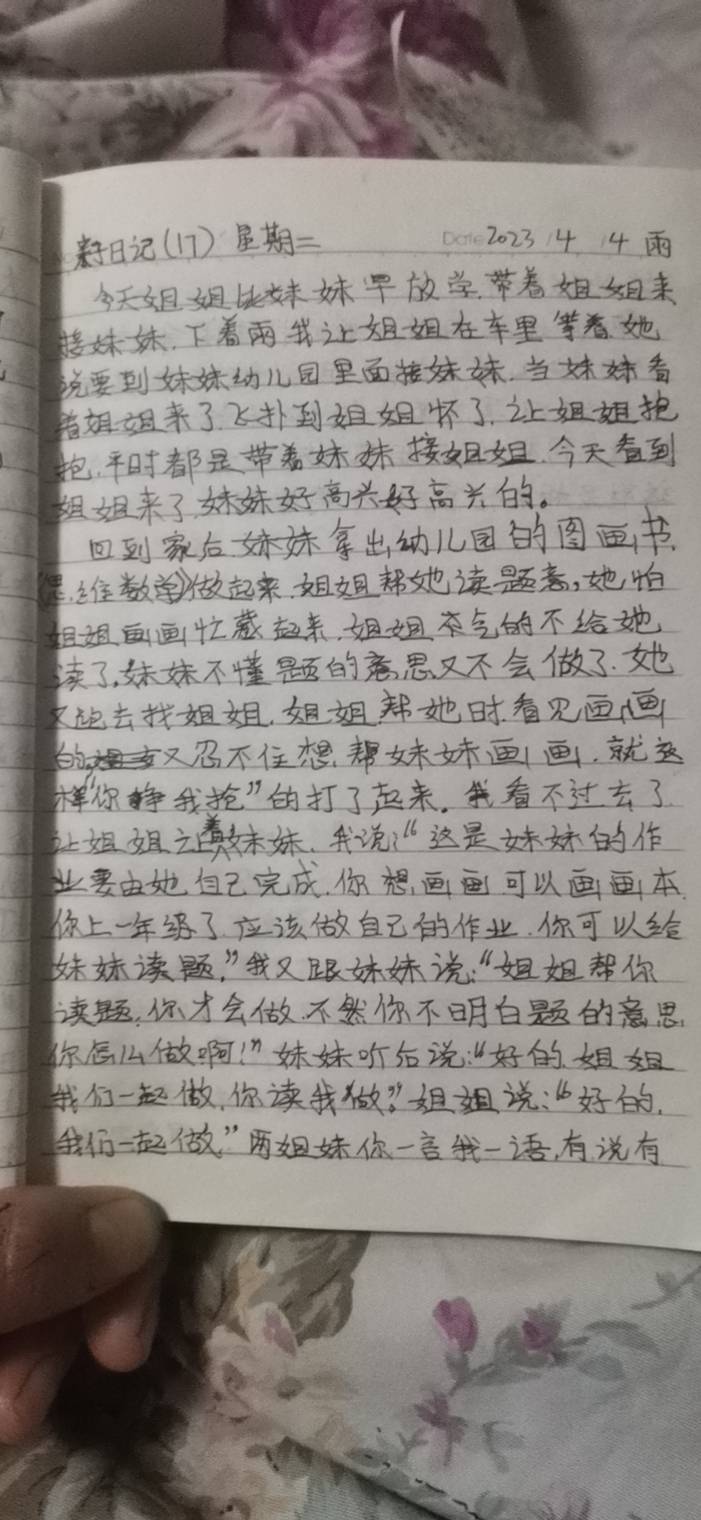 亲子日记(17) 星期二 Date 2023 14 14 雨
今天姐姐比妹妹早放学.带着姐姐来
接妹妹.下着雨我让姐姐在车里等着.她
说要到妹妹幼儿园里面接妹妹.当妹妹看
着姐姐来了.飞扑到姐姐怀了.让姐姐抱
抱.平时都是带着妹妹接姐姐.今天看到
姐姐来了.妹妹好高兴好高兴的。
回到家后.妹妹拿出幼儿园的图画书.
《思维数学》做起来.姐姐帮她读题意,她怕
姐姐画画忙藏起来.姐姐不气的不给她
读了.妹妹不懂题的意思又不会做了.她
又跑去找姐姐.姐姐帮她时.看见画画
的又忍不住想帮妹妹画画.就这
样"你争我抢"的打了起来.我看不过去了.
让姐姐立着妹妹.我说:"这是妹妹的作
业要由她自己完成.你想画画可以画画本.
你上一年级了.应该做自己的作业.你可以给
妹妹读题."我又跟妹妹说:"姐姐帮你
读题.你才会做.不然你不明白题的意思.
你怎么做啊!"妹妹听后说:"好的.姐姐
我们一起做.你读我做."姐姐说:"好的.
我们一起做."两姐妹你一言我一语,有说有